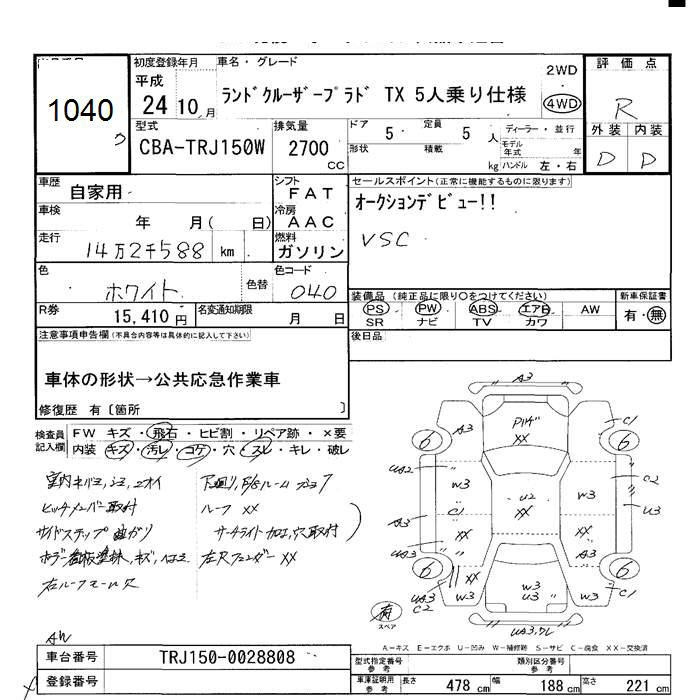 1040
初度登録年月
平成
24 10 月
車名・グレード
ランドクルーザープラド TX 5人乗り仕様
2WD
4WD
評価点
R
外装 内装
D D
型式
CBA-TRJ150W
排気量
2700
CC
ドア 5
定員 5 人
形状
積載
kg
ディーラー・並行
モデル年式 年
ハンドル 左・右
車歴
自家用
シフト
FAT
セールスポイント(正常に機能するものに限ります)
オークションデビュー!!
VSC
車検
年 月( 日)
冷房
AAC
走行
14万2千588 km
燃料
ガソリン
色
ホワイト
色替
色コード
040
装備品(純正品に限り○をつけてください)
PS PW ABS エアB AW
SR ナビ TV カワ
新車保証書
有・無
R券
15,410円
名変通知期限
月 日
後日品
注意事項申告欄(不具合内容等は具体的に記入して下さい)
車体の形状→公共応急作業車
修復歴 有〔箇所 〕
検査員記入欄
FW キズ・飛石・ヒビ割・リペア跡・×要
内装 キズ・汚レ・コゲ・穴・スレ・キレ・破レ
ルーフ XX
サイドステップ 曲ガリ
サーチライト加工、穴取付
左Rフェンダー XX
A3
C1
6
6
XX
UA2
W3
U2
W3
C2
U3
A3
C1
XX
XX
A3
6
6
XX
W3
U3
W3
UA3
C2
W3
C1
有
スペア
AW
A…キズ E…エクボ U…凹み W…補修跡 S…サビ C…腐食 XX…交換済
車台番号
TRJ150-0028808
登録番号
型式指定番号
参考
類別区分番号
参考
車庫証明用
参考
長さ 478 cm
幅 188 cm
高さ 221 cm